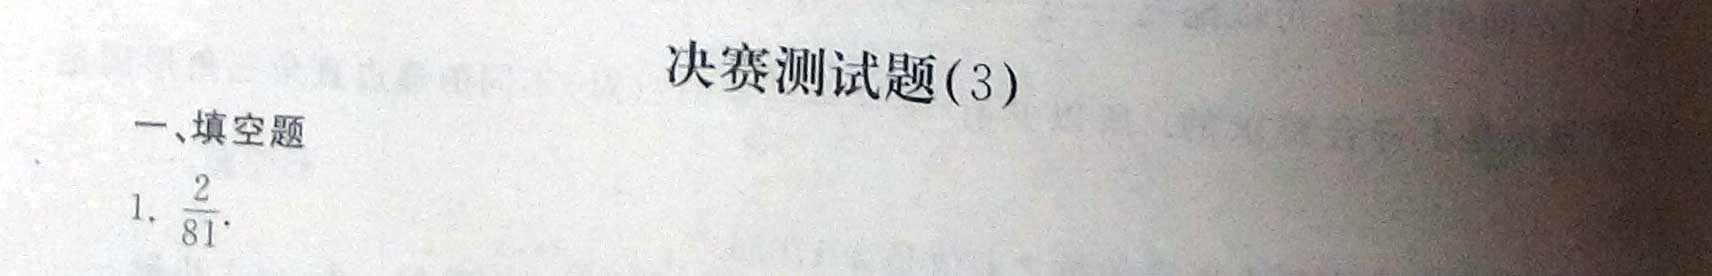 决赛测试题(3)
一、填空题
1. 2/81.